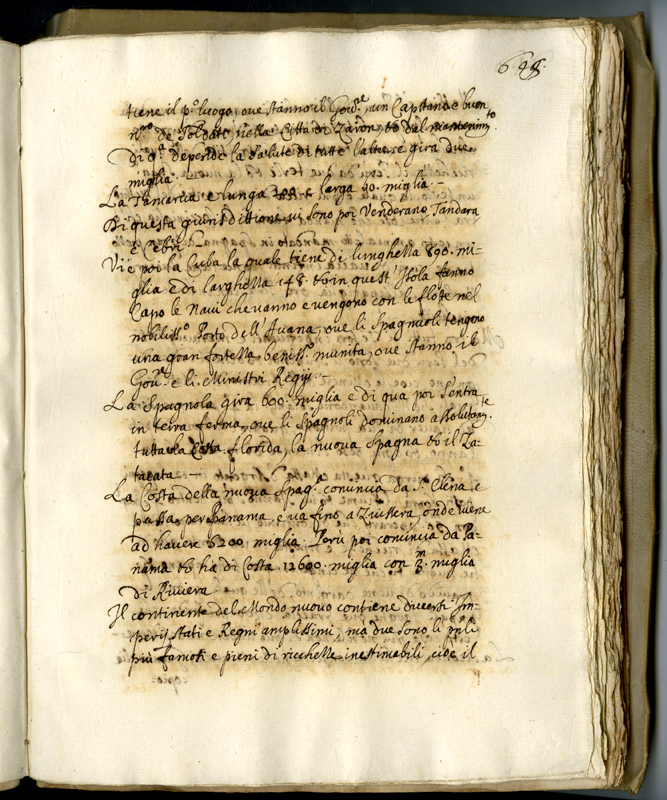 648.
tiene il p.º luogo, oue stanno il Gou.re un Capitano e buon
n.ro de Soldati nella Città di        et dal mantenim.to
Di q.a depende la salute di tutte l'altre e gira due
miglia.
La Iamaica e lunga      e larga 60. miglia. -
Di questa giurisdittione ui sono poi
e
Vi e poi la Cuba la quale tiene di lunghezza 890. mi-
glia e di larghezza 148. et in quest' Isola fanno
Capo le Naui che uanno e uengono con le flote nel
nobiliss.º Porto dell'Auana, oue li Spagnuoli tengono
una gran fortezza beniss.º munita, oue stanno il
Gou.re e li Ministri Regij. -
La Spagnola gira 600. miglia e di qua poi s'entra
in terra ferma, oue li Spagnoli dominano assolutam.te
tutta la Costa florida, la nuoua Spagna et il
-
La Costa della nuoua Spag.a comincia da S.ta Elena e
passa per Panama e ua fino a         onde uiene
ad hauere 5200. miglia. Perù poi comincia da Pa-
nama et ha di Costa 12600. miglia con       miglia
di Riuiera
Il continente del Mondo nuouo contiene diuersi Im-
perij stati e Regni amplissimi, ma due sono li pñli
più famosi e pieni di ricchezze inestimabili, cioè il